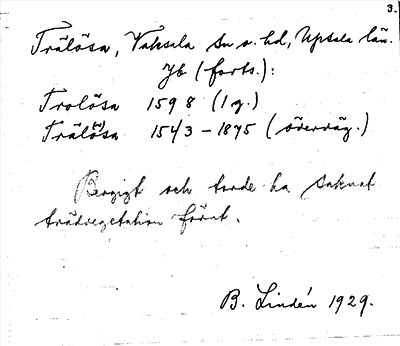 3.
Trälösa, Vaksala sn o. hd, Upsala län.
Jb (forts.):
Trolösa 1598 (1 g.)
Trälösa 1543 – 1875 (överväg.)
Bergigt och torde ha saknat
trädvegetation förut.
B. Lindén 1929.